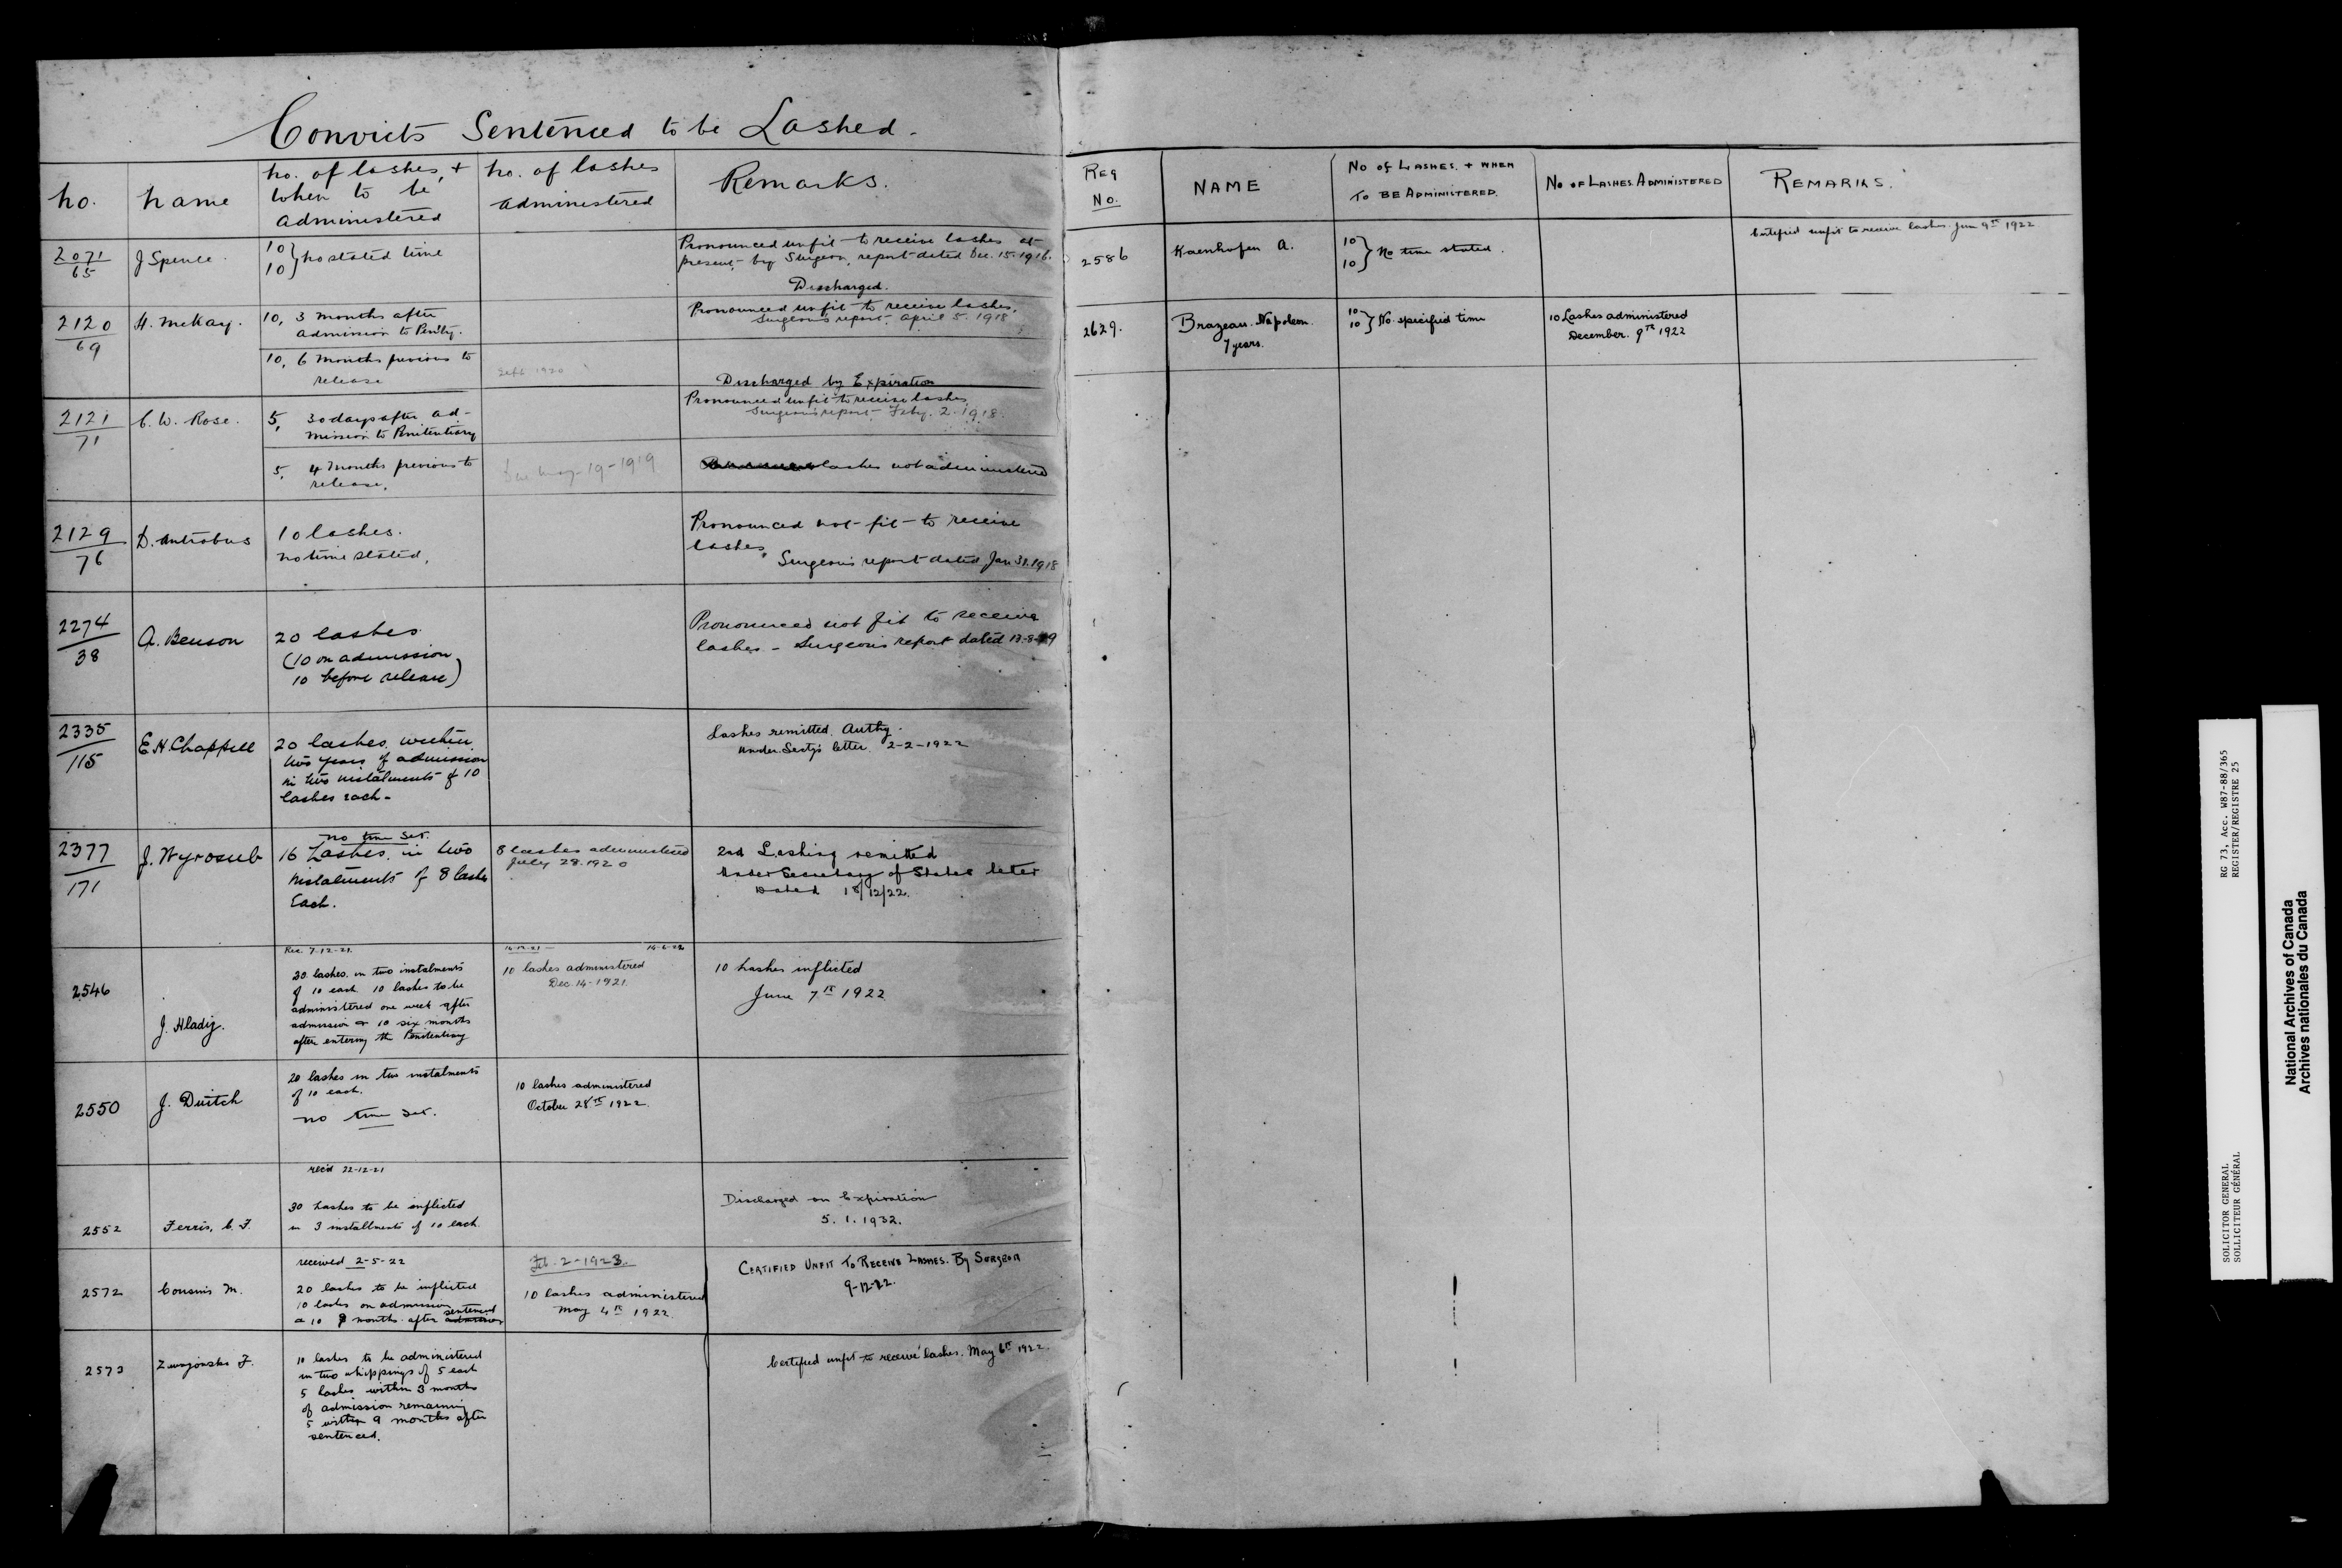 Convicts Sentenced to be Lashed.
no.
name
no. of lashes, +
when to be
administered
no. of lashes
administered
Remarks.
2071
65
J Spence.
10
10 } no stated time
Pronounced unfit to receive lashes at
present by Surgeon, report dated Dec. 15. 1916.
Discharged.
2120
69
H. McKay.
10, 3 months after
admission to Penity.
Pronounced unfit to receive lashes,
Surgeon's report. April 5. 1918
10, 6 months previous to
release
Sept 1920
Discharged by Expiration
2121
71
C. W. Rose.
5, 30 days after ad-
mission to Penitentiary
Pronounced unfit to receive lashes
Surgeon's report Feby. 2. 1918.
5, 4 months previous to
release.
Due May-19-1919
lashes not administered
2129
76
D. Antrobus
10 lashes.
no time stated.
Pronounced not fit to receive
lashes,
Surgeon's report dated Jan 31. 1918
2274
38
A. Benson
20 lashes
(10 on admission,
10 before release)
Pronounced not fit to receive
lashes - Surgeon's report dated 13-8-19
2335
115
E. H. Chappell
20 lashes within
two years of admission
in two instalments of 10
lashes each-
Lashes remitted. Authy.
Under Secty's letter 2-2-1922
2377
171
J. Wyrosub
no time set.
16 Lashes, in two
instalments of 8 lashes
Each.
8 lashes administered
July 28. 1920
2nd Lashing remitted
Under Secretary of States letter
Dated 18/12/22.
2546
J. Hladij.
Rec. 7-12-21.
20 lashes in two instalments
of 10 each 10 lashes to be
administered one week after
admission & 10 six months
after entering the Penitentiary
14-12-21 - 14-6-22
10 lashes administered
Dec. 14-1921
10 Lashes inflicted
June 7th 1922
2550
J. Duitch
20 lashes in two instalments
of 10 each.
no time set.
10 lashes administered
October 28th 1922.
2552
Ferris, C. F.
rec'd 22-12-21
30 Lashes to be inflicted
in 3 installments of 10 each.
Discharged on Expiration
5. 1. 1932.
2572
Cousins M.
received 2-5-22
20 lashes to be inflicted
10 lashes on admission
& 10 9 months after sentenced admission
Feb. 2-1923.
10 lashes administered
May 4th 1922.
CERTIFIED UNFIT TO RECEIVE LASHES. BY SURGEON
9-12-22.
2573
F.
10 lashes to be administered
in two whippings of 5 each
5 lashes within 3 months
of admission remaining
5 within 9 months after
sentenced.
Certified unfit to receive lashes. May 6th 1922.
REG
No.
NAME
No of LASHES. + WHEN
TO BE ADMINISTERED.
No OF LASHES ADMINISTERED
REMARKS.
2586
Kaenhofen A.
10
10 } No time stated.
Certified unfit to receive lashes. Jun 9th 1922
2629.
Brazeau. Napoleon.
7 years.
10
10 } No specified time
10 Lashes administered
December. 9th 1922
RG 73, Acc. W87-88/365
REGISTER/REGISTRE 25
SOLICITOR GENERAL
SOLLICITEUR GÉNÉRAL
National Archives of Canada
Archives nationales du Canada